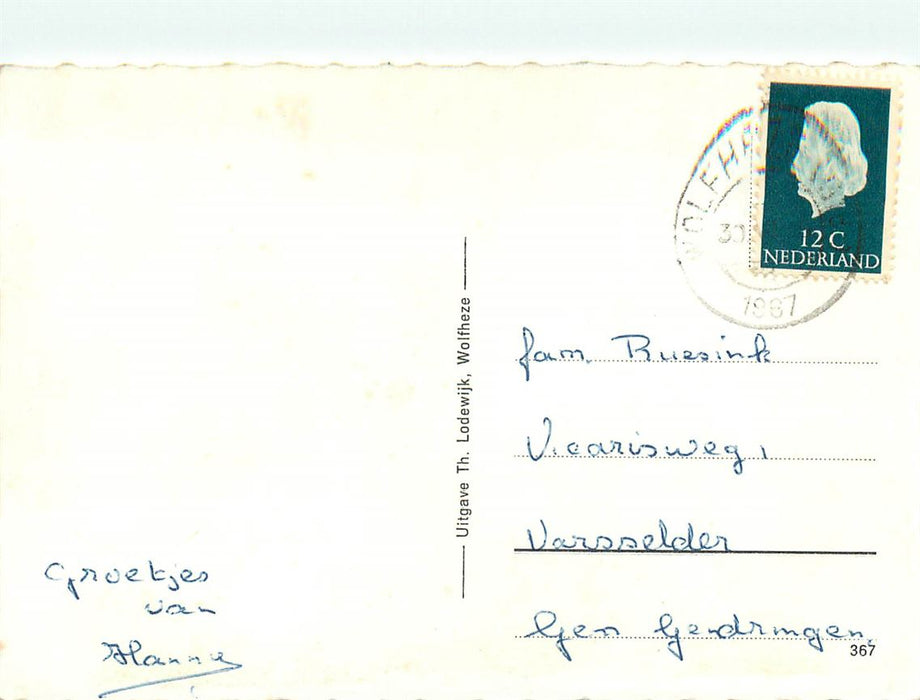 WOLFHEZE
30
1967
12 C
NEDERLAND
Uitgave Th. Lodewijk, Wolfheze
fam. Ruesink
Vicarisweg 1
Varsselder
Gem Gendringen.
367
Groetjes
van
Hannie